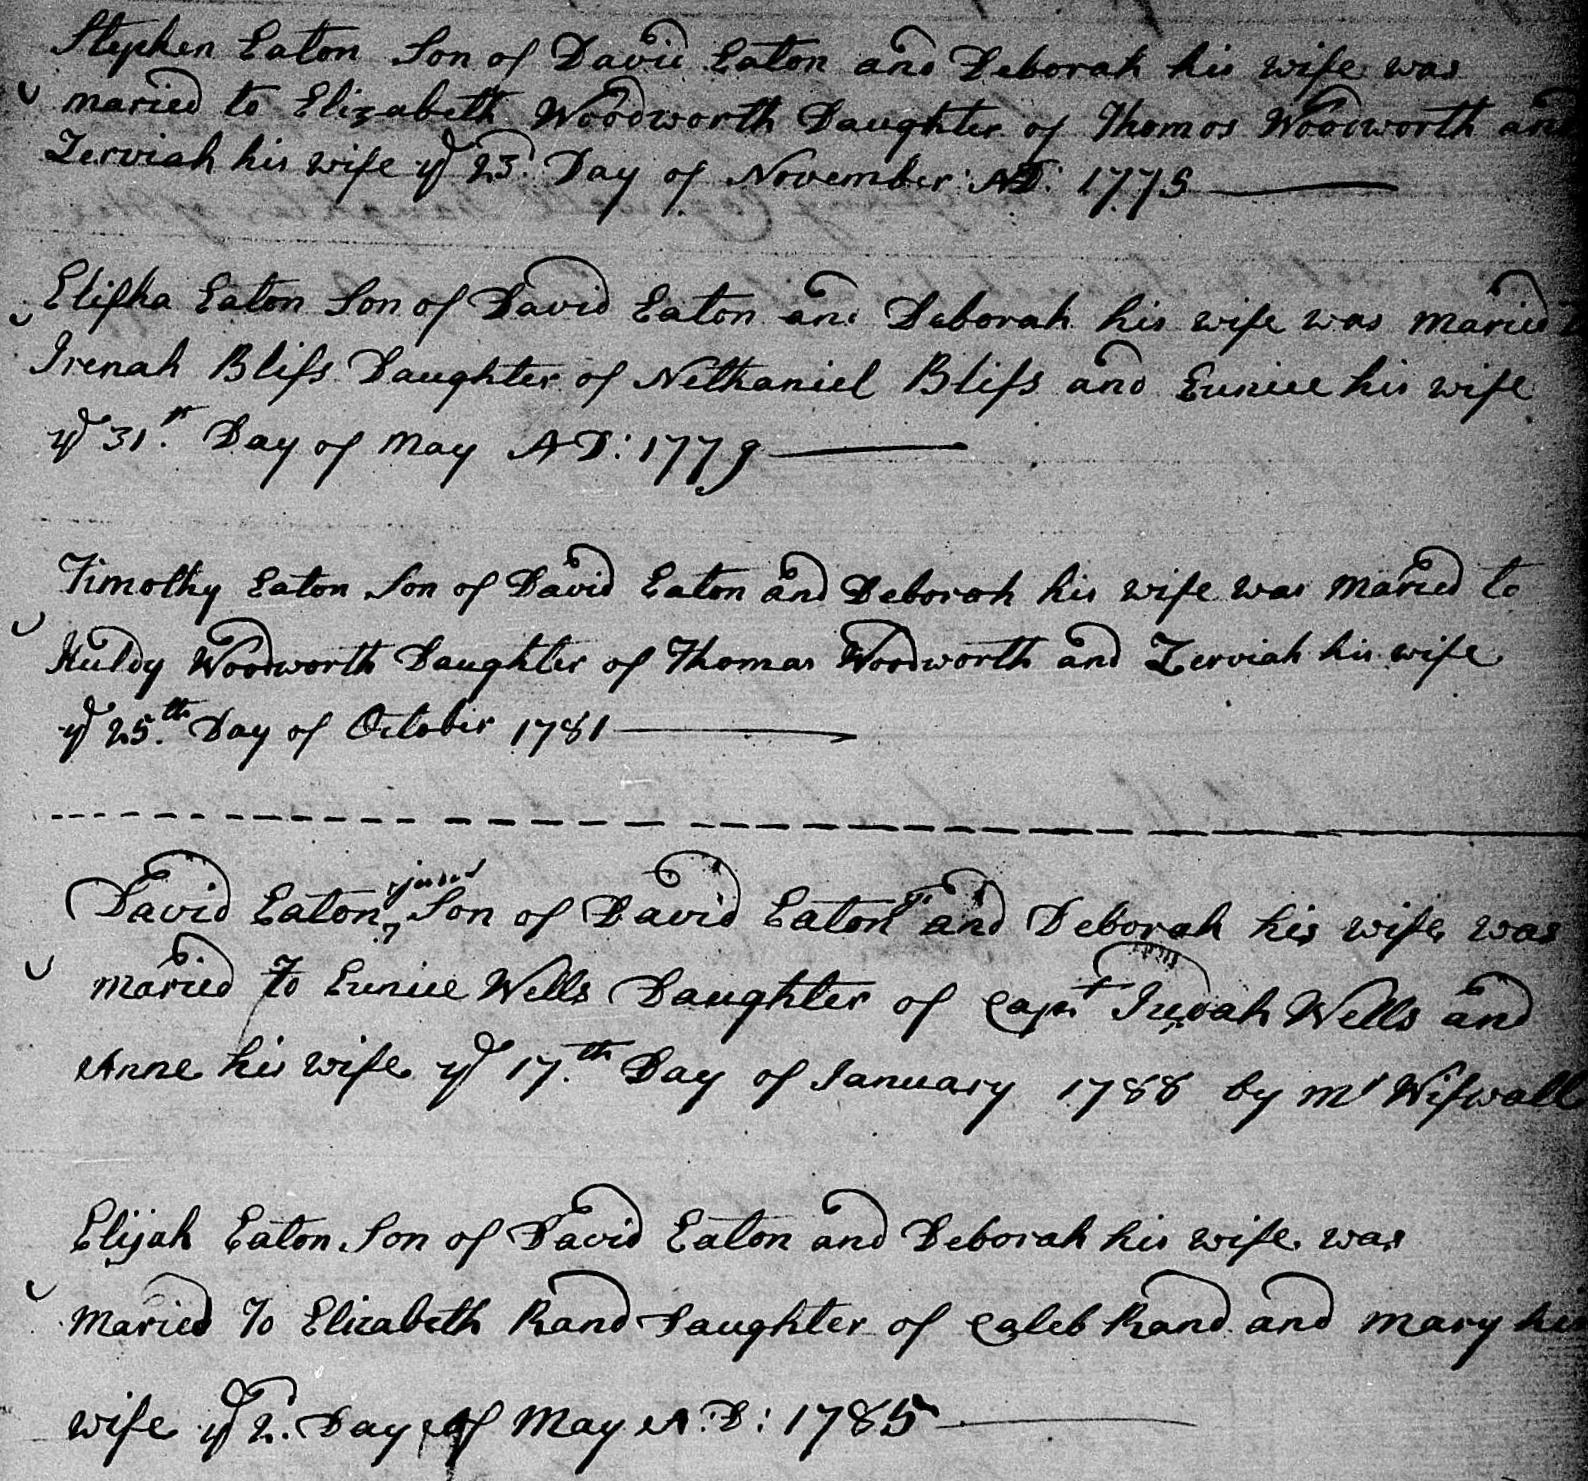 Stephen Eaton Son of David Eaton and Deborah his wife was
maried to Elizabeth Woodworth Daughter of Thomas Woodworth and
Zerviah his wife ye 23d Day of November: AD: 1775
Elisha Eaton Son of David Eaton and Deborah his wife was maried
Irenah Bliss Daughter of Nethaniel Bliss and Eunice his wife
ye 31st Day of May AD: 1779
Timothy Eaton Son of David Eaton and Deborah his wife was maried to
Huldy Woodworth Daughter of Thomas Woodworth and Zerviah his wife
ye 25th Day of October 1781
David Eaton Son of David Eaton and Deborah his wife was
maried To Eunice Wells Daughter of Capt Judah Wells and
Anne his wife ye 17th Day of January 1788 by Mr Wiswall
Elijah Eaton Son of David Eaton and Deborah his wife was
Maried To Elizabeth Rand Daughter of Caleb Rand and Mary his
wife ye 2d Day of May A:D: 1785